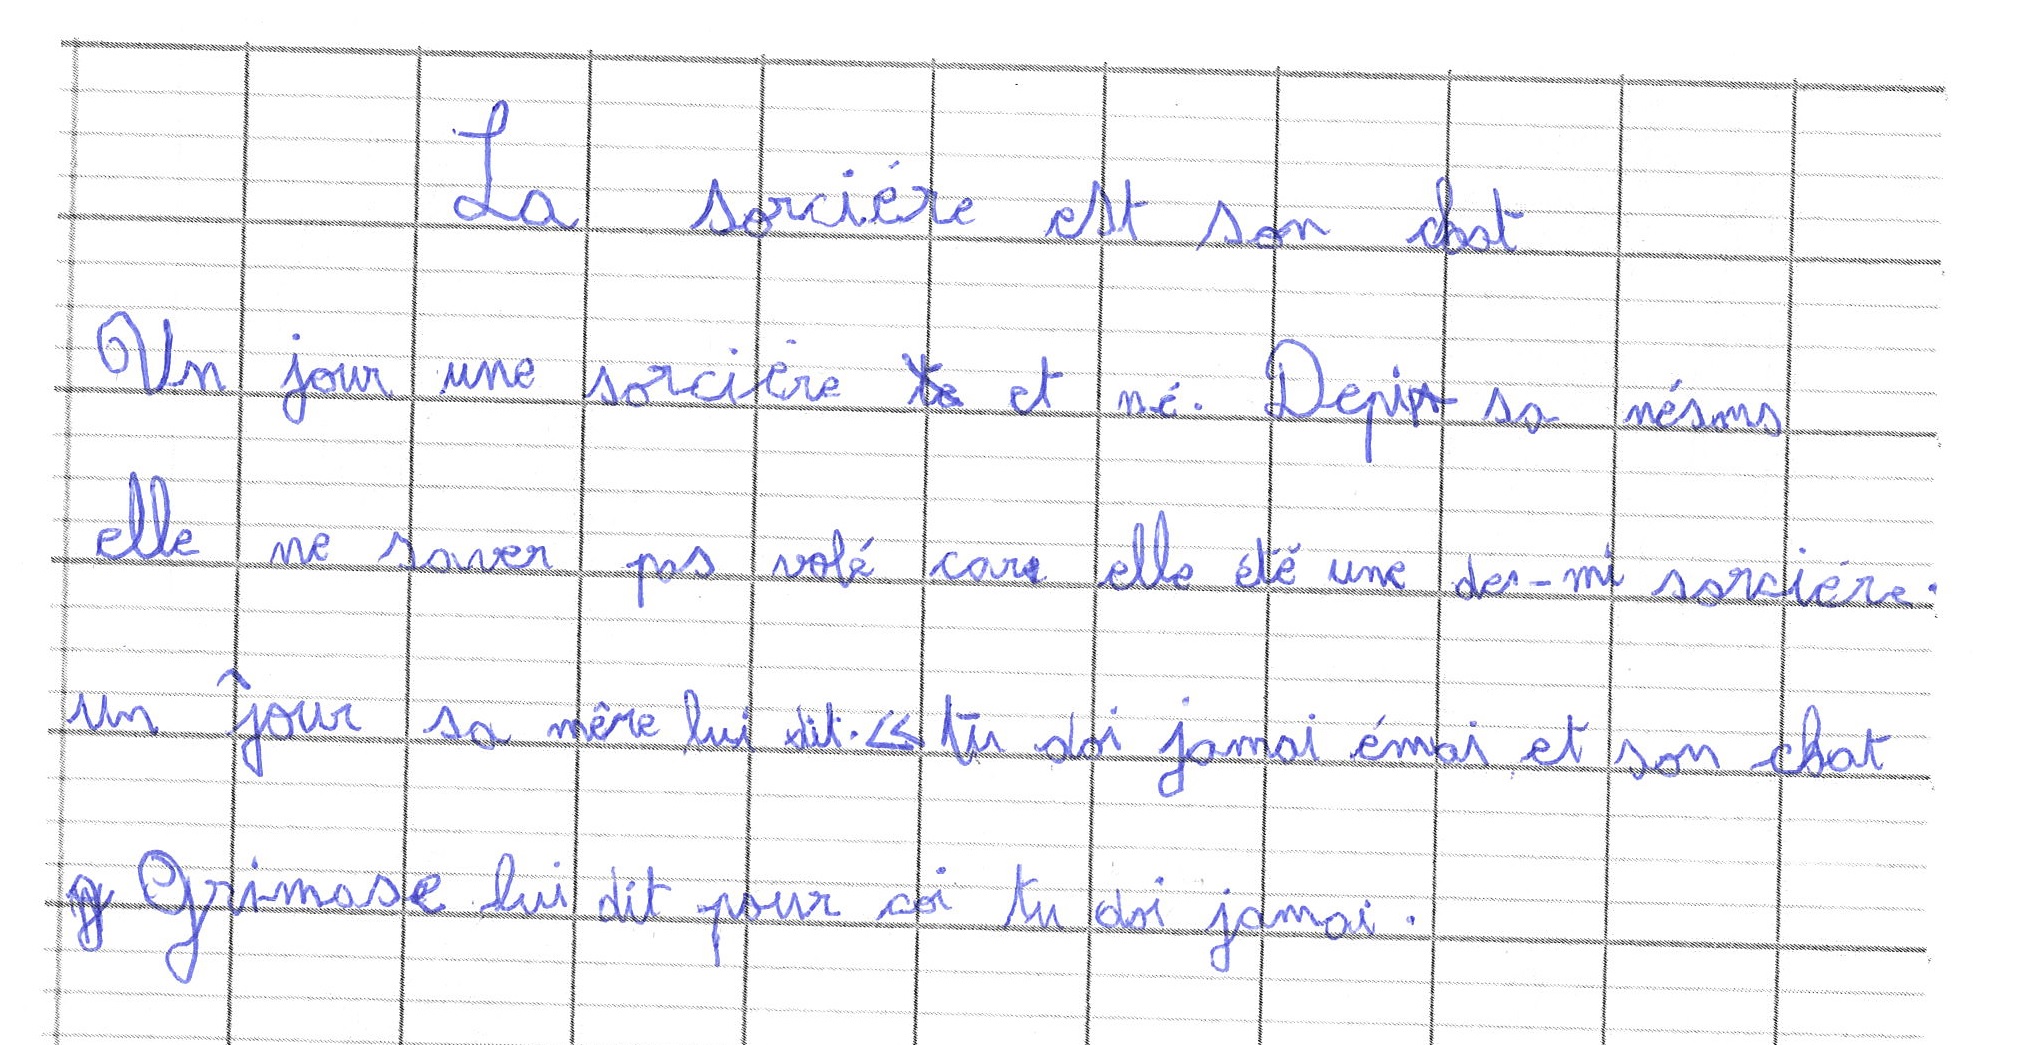 La sorciére est son chat
Un jour une sorcière et né. Depis sa nésans
elle ne saver pas volé care elle été une des-mi sorciére.
un jour sa mêre lui dit. << tu doi jamai émai et son chat
g Grimase lui dit pour coi tu doi jamai.